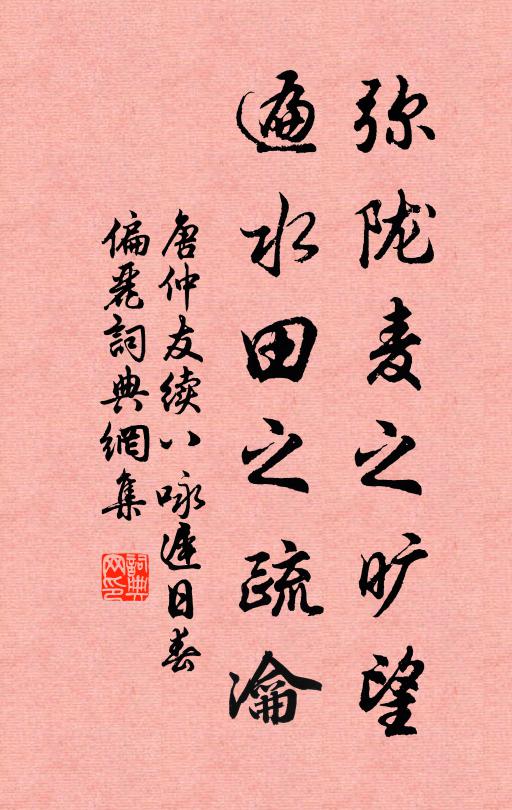 弥陇麦之旷望
遍水田之疏瀹
唐仲友续八咏遲日春
偏麗詞典網集
詞典
网印